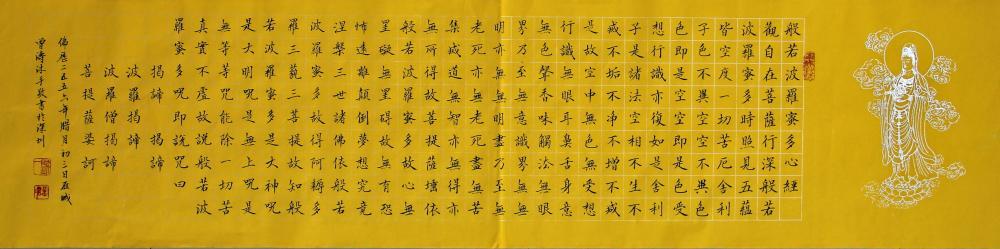 般若波羅蜜多心經
觀自在菩薩行深般若
波羅蜜多時照見五蘊
皆空度一切苦厄舍利
子色不異空空不異色
色即是空空即是色受
想行識亦復如是舍利
子是諸法空相不生不
滅不垢不淨不增不減
是故空中無色無受想
行識無眼耳鼻舌身意
無色聲香味觸法無眼
界乃至無意識界無無
明亦無無明盡乃至無
老死亦無老死盡無苦
集滅道無智亦無得以
無所得故菩提薩埵依
般若波羅蜜多故心無
罣礙無罣礙故無有恐
怖遠離顛倒夢想究竟
涅槃三世諸佛依般若
波羅蜜多故得阿耨多
羅三藐三菩提故知般
若波羅蜜多是大神呪
是大明呪是無上呪是
無等等呪能除一切苦
真實不虛故說般若波
羅蜜多呪即說呪曰
揭諦 揭諦
波羅揭諦
波羅僧揭諦
菩提薩婆訶
佛曆二五五六年腊月初三日
沐手敬書於深圳